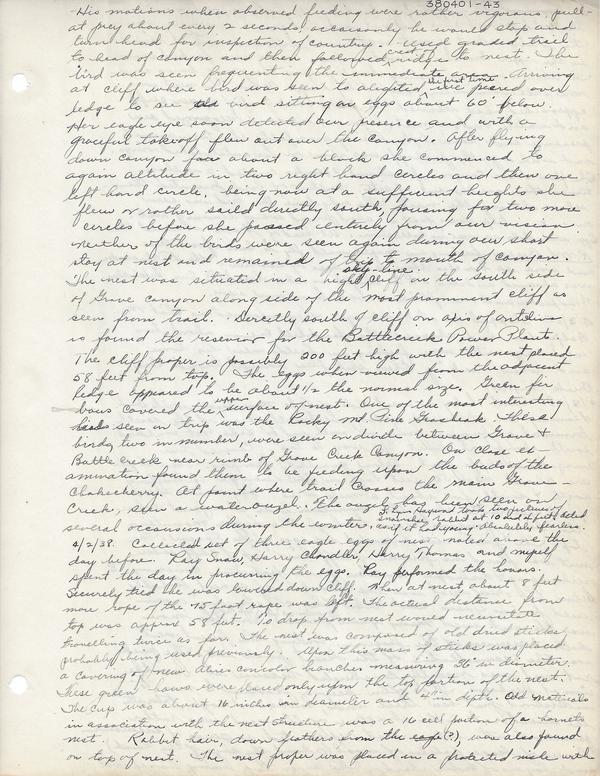 380401-43
His motions when observed feeding were rather vigorous, pull-
at prey about every 2 seconds. occasionly he would stop and
turn head for inspection of country. I used graded trail
to head of canyon and then followed ridge to nest. The
bird was seen frequenting the immediate Arriving
at cliff where bird was seen to alighted the first time we peered over
ledge to see bird sitting on eggs about 60' below.
Her eagle eye soon detected our presence and with a
graceful takeoff flew out over the canyon. After flying
down canyon for about a block she commenced to
again altitude in two right hand circles and then one
left hand circle. being now at a sufficient heights she
flew or rather saild directly south, pausing for two more
circles before she passed entirely from our vision.
neither of the birds were seen again during our short
stay at nest and remained of trip to mouth of canyon.
The nest was situated in a high sky-line cliff on the south side
of Grove canyon along side of the most prominent cliff as
seen from trail. Directly south of cliff on axis of anticline
is found the resevior for the Battlecreek Power Plant.
The cliff proper is possibly 200 feet high with the nest placed
58 feet from top. The eggs when viewed from the adjacent
ledge appeared to be about 1/2 the normal size. Green fir
bows covered the upper surface of nest. One of the most interesting
birds seen on trip was the Rocky Mt. Pine Grosbeak. These
birds, two in number, were seen on divide between Grove &
Battle creek near rimb of Grove Creek Canyon. On close ex-
amination found them to be feeding upon the buds of the
Chokecherry. At point where trail crosses the main Grove
Creek, seen a water ouzel. The ouzel has been seen on
several occassions during the winter. as if had young. absolutely fearless.
4/2/38. Collected set of three eagle eggs of nest noted above the
day before. Ray Snow, Harry Chandler, Harry Thomas and myself
spent the day in procuring the eggs. Ray performed the honors.
Securely tied he was lowered down cliff. When at nest about 8 feet
more rope of the 75 foot rope was left. The actual distance from
top was approx 58 feet. To drop from nest would necessitate
travelling twice as far. The nest was composed of old dried sticks
probably being used previously. Upon this mass of sticks was placed
a covering of new Abies concolor branches measuring 26" in diameter.
These green bows were placed only upon the top portion of the nest.
The cup was about 16 inches in diameter and 4" in depth. Odd materials
in association with the nest structure was a 16 cell portion of a hornets
nest. Rabbit hair, down feathers from the eagle(?), were also found
on top of nest. The nest proper was placed in a protected niche with